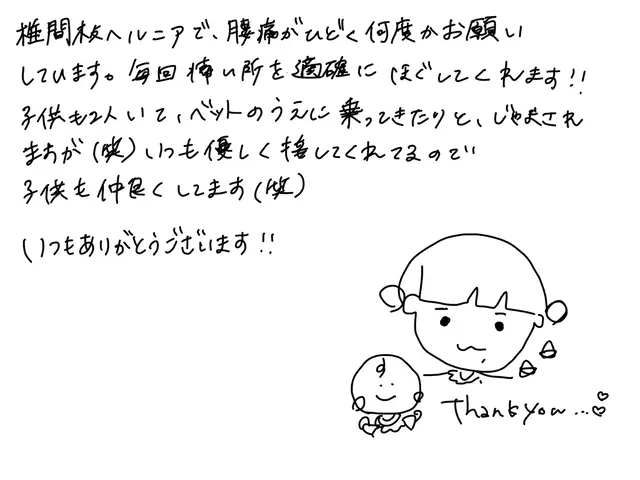 椎間板ヘルニアで、腰痛がひどく何度かお願い
しています。毎回痛い所を適確にほぐしてくれます!!
子供も2人いて、ベットのうえに乗ってきたりと、じゃまされ
ますが(笑)いつも優しく接してくれてるので
子供も仲良くしてます(笑)
いつもありがとうございます!!
Thank you...